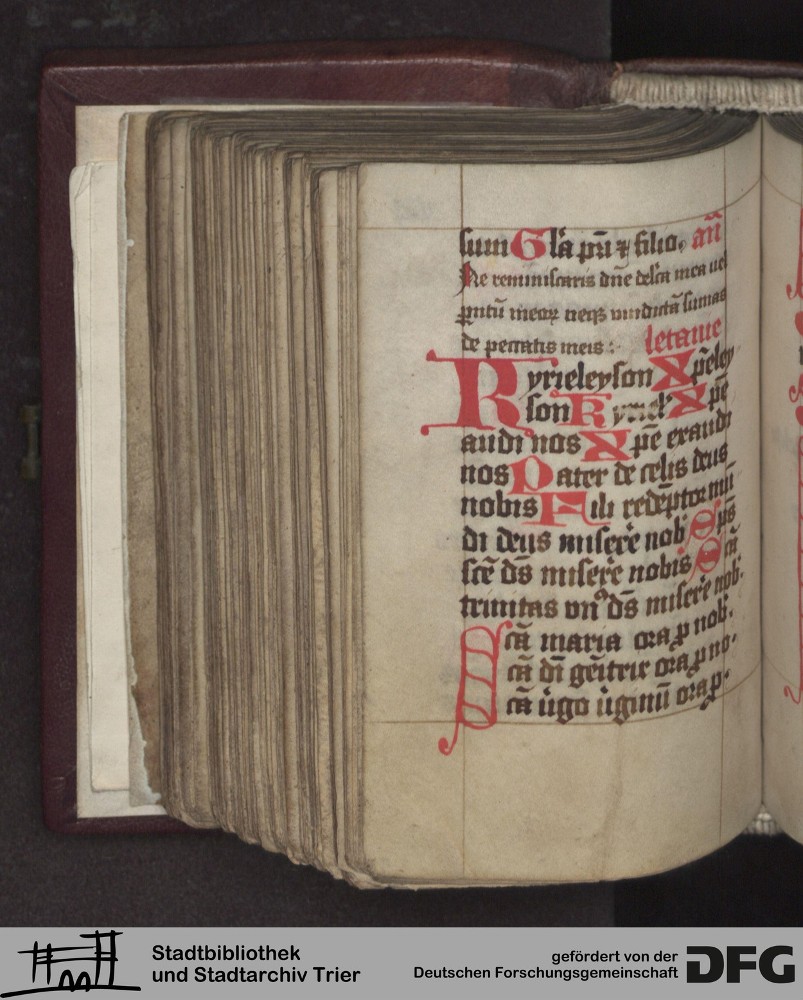 sum Gl'a pr̄i ⁊ filio. an̄
Ne reminiscaris dn̄e del'ca mea uel
ꝑntū meoꝝ neqꝫ vindictā sumas
de peccatis meis : letanie
Kyrieleyson Xp̄eley
son Kyriel' Xp̄e
audi nos Xp̄e exaudi
nos Pater de celis deus
nobis Fili redēptor mū
di deus miserere nob Sp̄s
sc̄e ds̄ miserere nobis Sc̄a
trinitas vn᷒ ds̄ miserere nob.
Sc̄a maria ora ꝓ nob.
sc̄a di gēitrix ora ꝓ no.
sc̄a ùgo ùginū ora ꝓ.
Stadtbibliothek
und Stadtarchiv Trier
gefördert von der
Deutschen Forschungsgemeinschaft
DFG